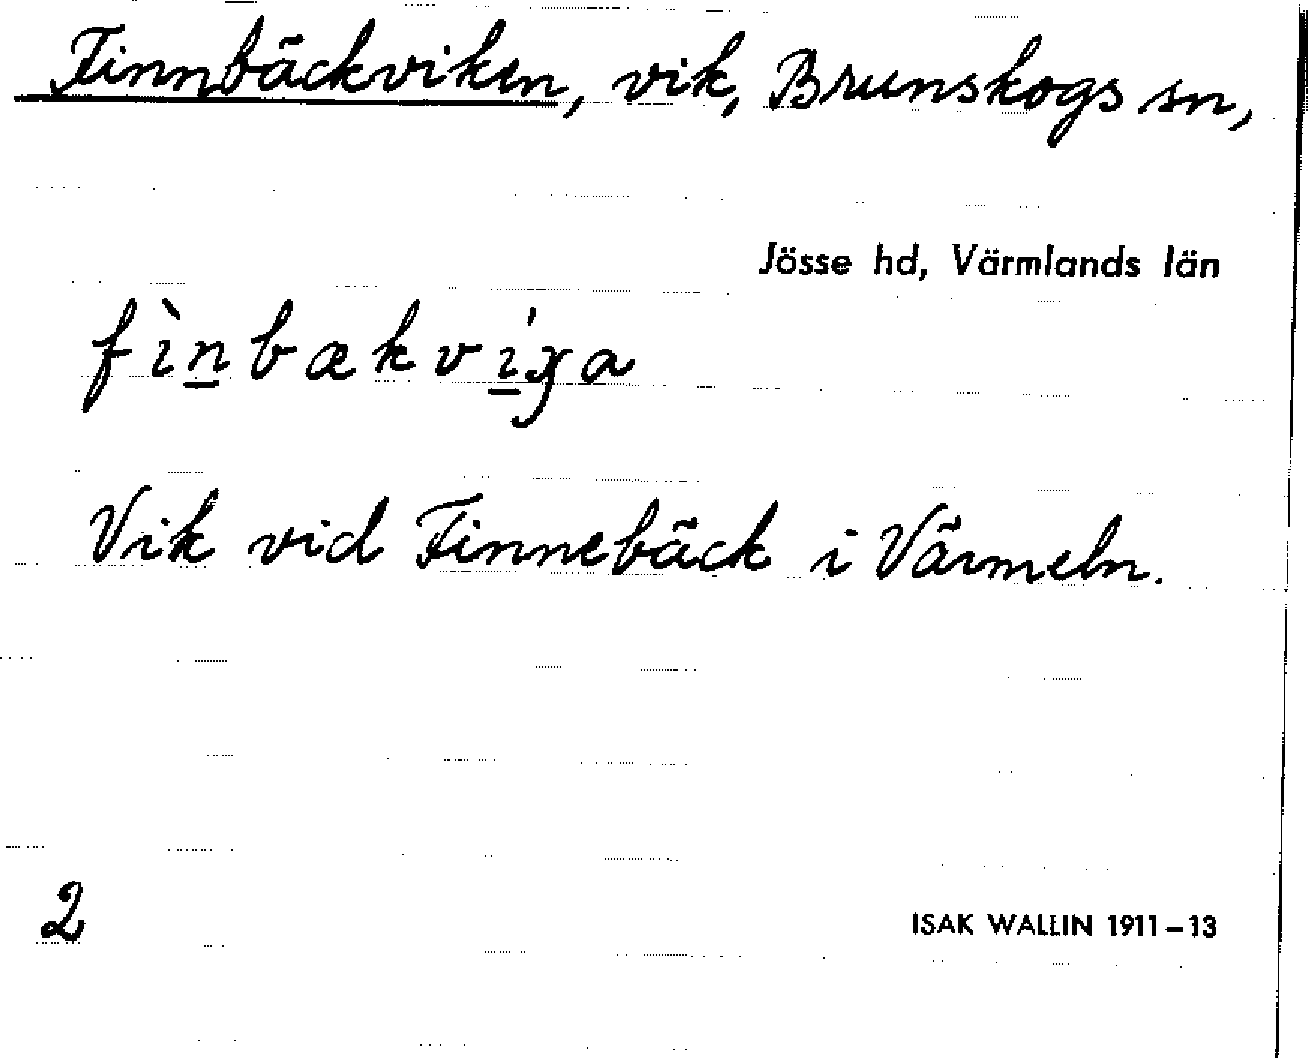 Finnbäckviken, vik, Brunskogs sn,
Jösse hd, Värmlands län
fìn̲bækvı̲́ɡa
Vik vid Finnebäck i Värmeln.
2
ISAK WALLIN 1911–13